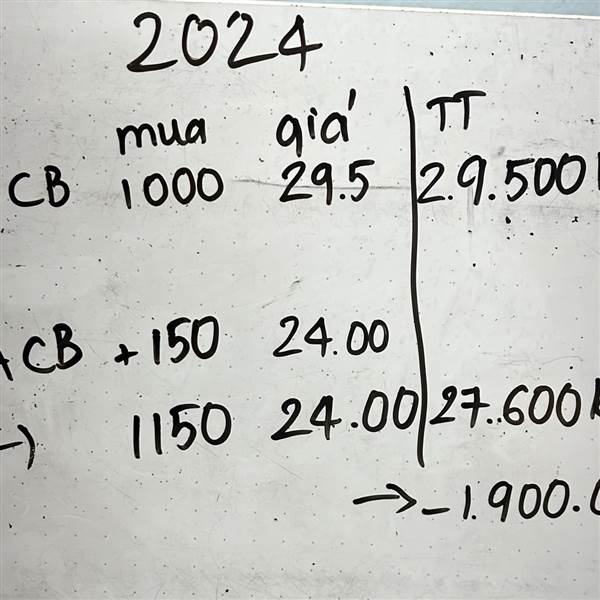 2024
mua giá TT
CB 1000 29.5 29.500
CB +150 24.00
→ 1150 24.00 27.600k
→ -1.900.0